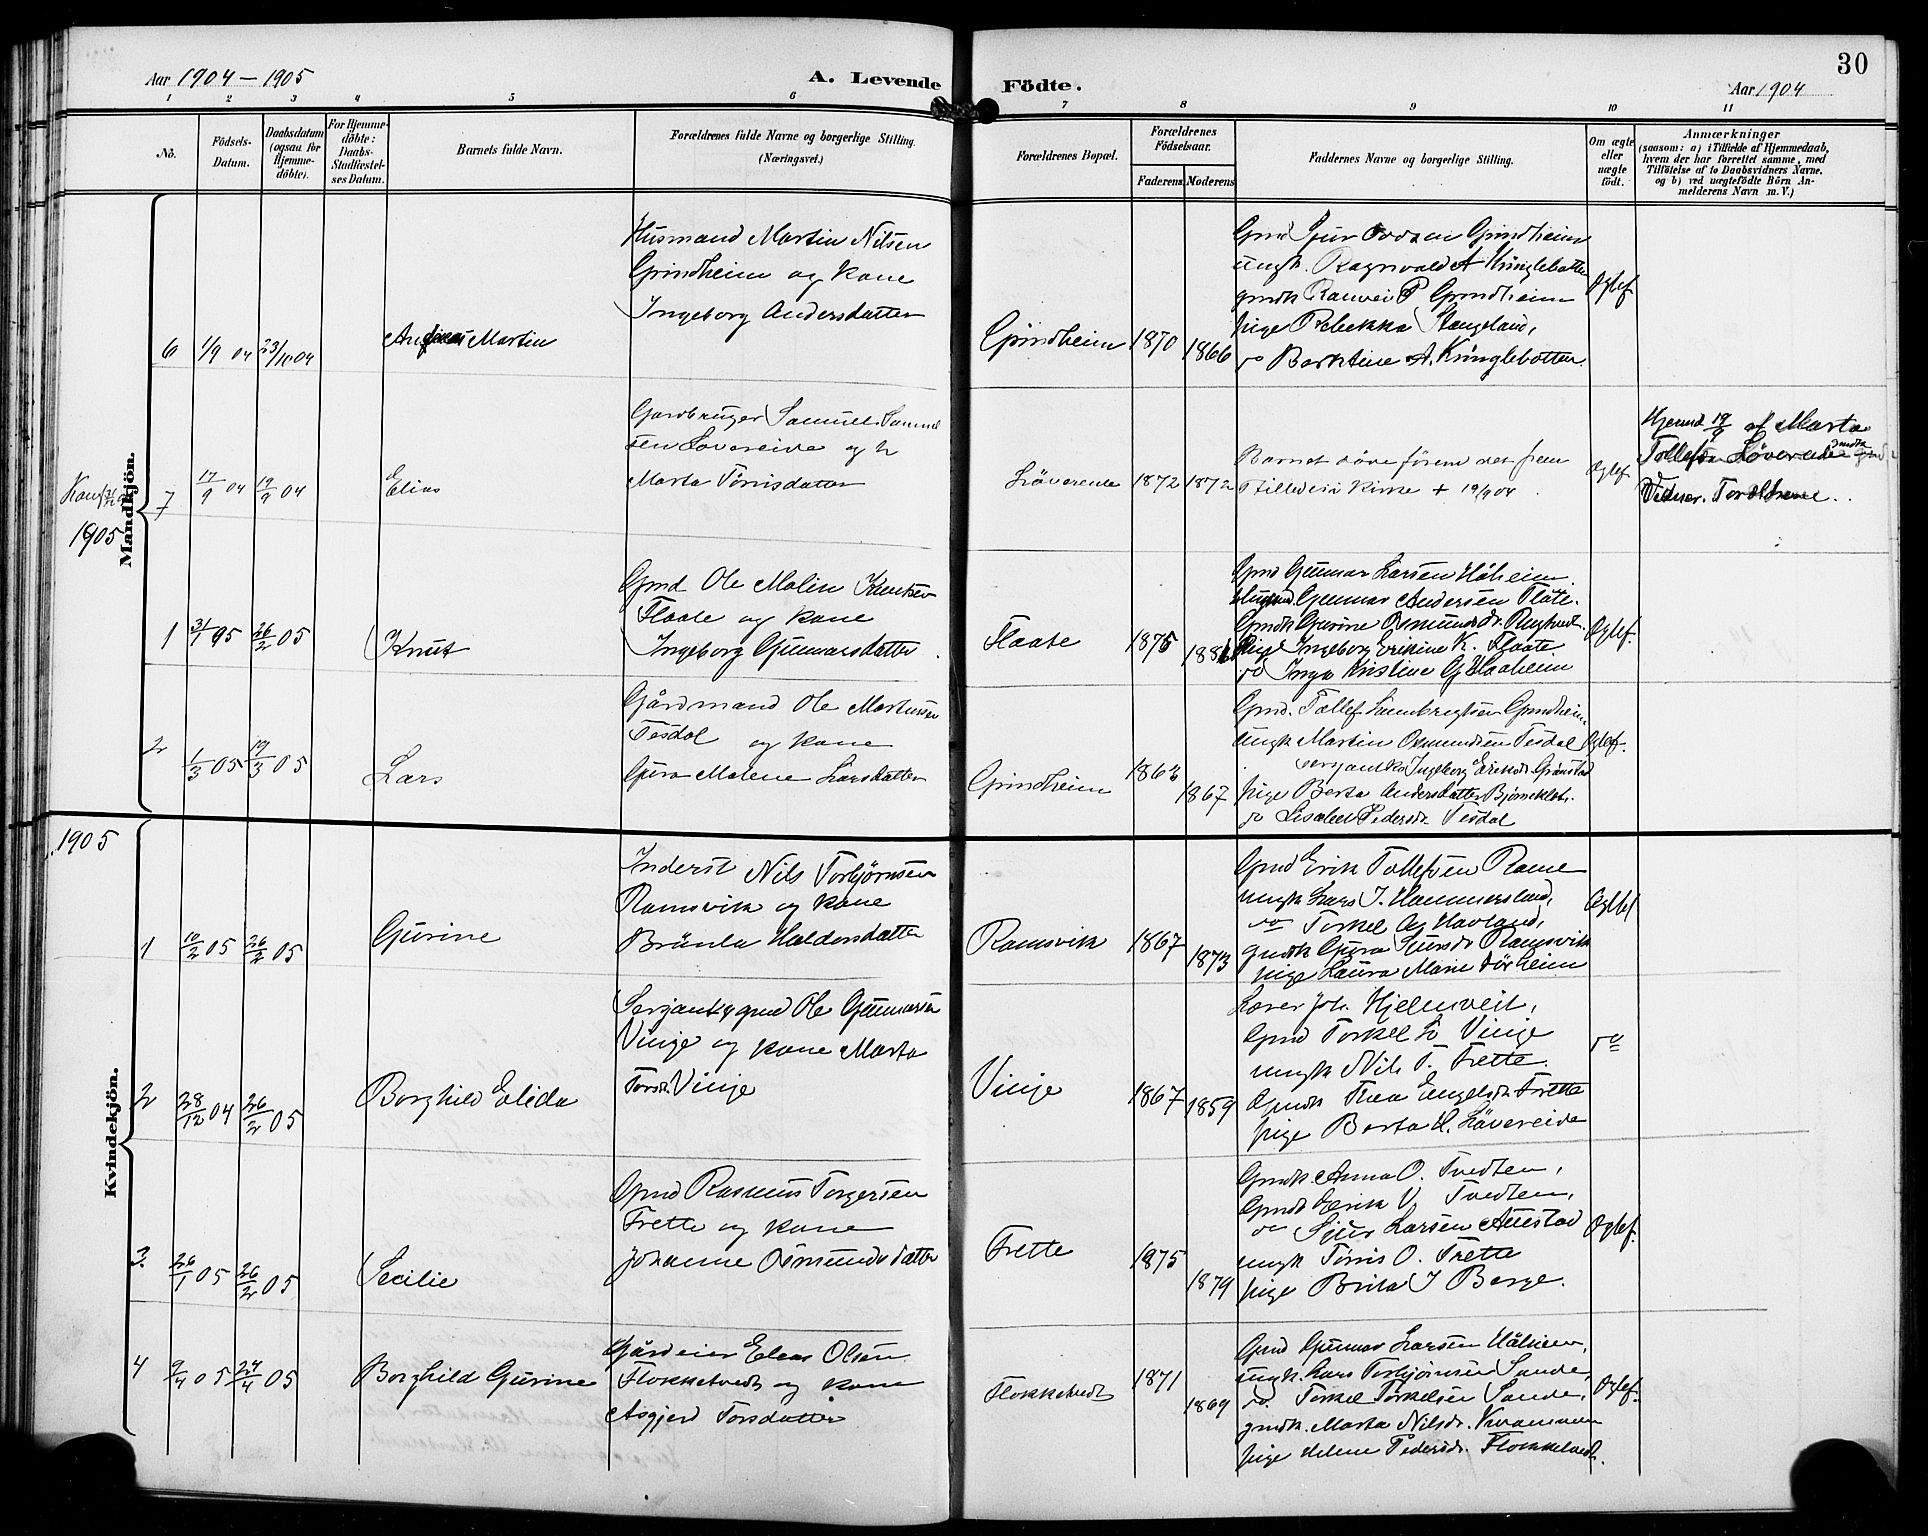 30
Aar 1904 - 1905
A. Levende Födte.
Aar 1904
1 2 3 4 5 6 7 8 9 10 11
No.
Födsels-Datum.
Daabsdatum (ogsaa for Hjemme-döbte).
For Hjemme-döbte: Daabs-Stadfæstel-ses Datum.
Barnets fulde Navn.
Forældrenes fulde Navne og borgerlige Stilling. (Næringsvei.)
Forældrenes Bopæl.
Forældrenes Födselsaar.
Faderens. Moderens.
Faddernes Navne og borgerlige Stilling.
Om ægte eller uægte födt.
Anmærkninger
(saasom: a) i Tilfælde af Hjemmedaab, hvem der har forrettet samme, med Tilföielse af to Daabsvidners Navne, og b) ved uægtefödte Börn An-melderens Navn m. V.)
Mandkjön.
6 1/9 04 23/10 04
Martin
Husmand Martin Nilsen
Grindheim og kone
Ingeborg Andersdatter
Grindheim 1870 1866
Gmd Sjur Grindheim
ungk. Ragnvald A Kringlebotten
gmdk Ranvei P Grindheim
pige Rebekka Stangeland,
do A. Kringlebotten
Ægtef.
7 17/9 04 19/9 04
Elias
Gardbruger Samuel Samuel
sen Løvereide og k
Marta Tørrisdatter
Løvereide 1872 1872
Barnet døde førend det frem
stilledes i Kirke + 19/9 04
Ægtef.
Hjemd 19/9 af Marta
Løvereide
1905
1 31/1 05 26/2 05
Knut
Gmd Ole Malin Knutsen
Flaate og kone
Ingeborg Gunnarsdatter
Flaate 1875
Gmd Gunnar Larsen Håheim
Gunnar Andersen Flåte.
Gmdk Gurine Osmundsdr.
Pige Ingeborg Erikine K. Flaate
do Inga Kristine G Haaheim
Ægtef.
2 1/3 05 19/3 05
Lars
Gårdmand Ole Martinsen
Tesdal og kone
Gura Malene Larsdatter
Grindheim 1867
Gmd. Tollef Lambregtsen Grindheim
ungk Martin Osmundsen Tesdal
Ingeborg Eriksdr.
pige Berta Andersdatter
do Lisabet Pedersdr Tesdal
Ægtef.
1905
Kvindekjön.
1 10/2 05 26/2 05
Gurine
Inderst Nils Torbjørnsen
Ramsvik og kone
Haldorsdatter
Ramsvik 1867 1873
Gmd Erik Tollefsen Rame
ungk Lars J. Hammersland,
do Torkel Havland,
gmdk Gura Sjursdr Ramsvik
pige Laura Marie Sørheim
Ægtef
2 28/12 04 26/2 05
Borghild Elida
Serjant & gmd Ole Gunnarsen
Vinje og kone Marta
Torsdr Vinje
Vinje 1867 1859
Lærer Joh. Hjelmveit,
Gmd Torkel Vinje
ungk Nils T. Frette.
Gmdk Engelsdr Frette
pige Berta H. Løvereide
do
3. 26/1 05 26/2 05
Secilie
Gmd Rasmus Torgersen
Frette og kone
Johanne Osmundsdatter
Frette 1875 1879
Gmdk Anna O. Tvedten,
Gmd Erik V. Tvedten,
do Sjur Larsen Auestad
ungk Tørris O. Frette
pige Brita J Berge.
Ægtef.
4 9/4 05 24/4 05
Borghild Gurine
Gårdeier Elias Olsen
Flokketvedt og kone
Asgjerd Torsdatter
Flokketvedt 1871 1869
Gmd Gunnar Larsen Håheim,
ungk. Lars Torbjørnsen Sande,
do. Torkel Torkelsen Sande,
gmdk. Marta Nilsdr.
pige Helene Pedersdr. Flokketvedt.
Ægtef.